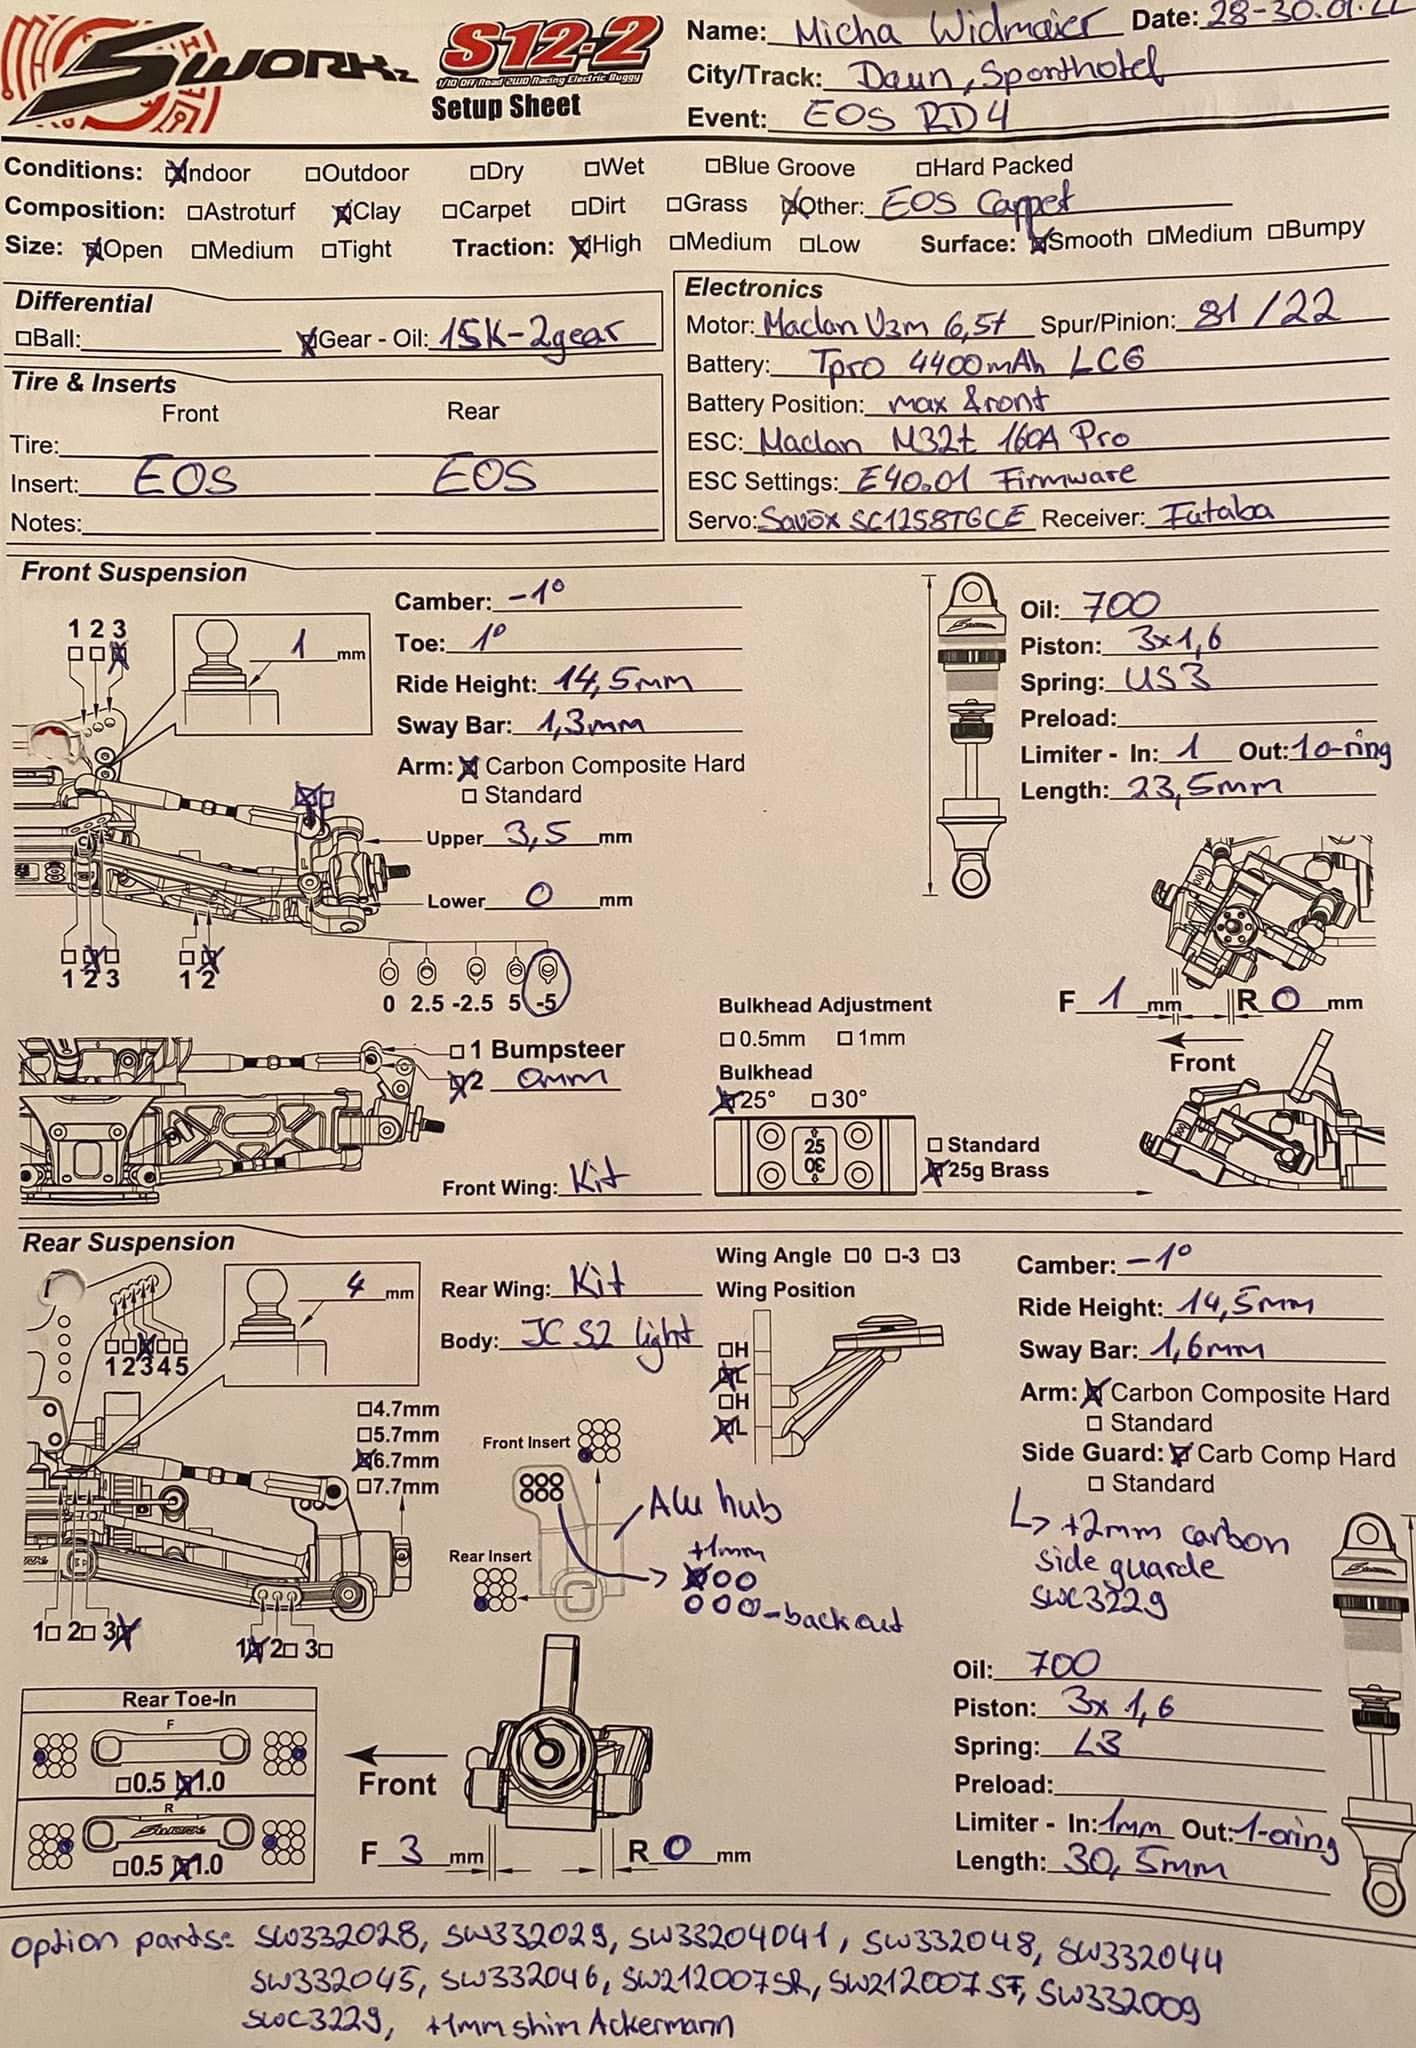 SWORKz
S12-2
1/10 Off Road 2WD Racing Electric Buggy
Setup Sheet
Name: Micha Widmaier Date: 28-30.01.22
City/Track: Daun, Sporthotel
Event: EOS RD4
Conditions: Indoor Outdoor Dry Wet Blue Groove Hard Packed
Composition: Astroturf Clay Carpet Dirt Grass Other: EOS Carpet
Size: Open Medium Tight Traction: High Medium Low Surface: Smooth Medium Bumpy
Differential
Ball: Gear - Oil: 15K-2gear
Tire & Inserts
Front Rear
Tire:
Insert: EOS EOS
Notes:
Electronics
Motor: Maclan V3m 6,5t Spur/Pinion: 81/22
Battery: Tpro 4400mAh LCG
Battery Position: max front
ESC: Maclan M32t 160A Pro
ESC Settings: E40.01 Firmware
Servo: Savöx SC1258TGCE Receiver: Futaba
Front Suspension
1 2 3
1 mm
Camber: -1°
Toe: 1°
Ride Height: 14,5mm
Sway Bar: 1,3mm
Arm: Carbon Composite Hard
Standard
Upper 3,5 mm
Lower 0 mm
1 2 3 1 2
0 2.5 -2.5 5 -5
Oil: 700
Piston: 3x1,6
Spring: US3
Preload:
Limiter - In: 1 Out: 1 o-ring
Length: 23,5mm
F 1 mm R 0 mm
Front
1 Bumpsteer
2 0mm
Front Wing: Kit
Bulkhead Adjustment
0.5mm 1mm
Bulkhead
25° 30°
25
30
Standard
25g Brass
Rear Suspension
4 mm
1 2 3 4 5
Rear Wing: Kit
Body: JC S2 light
4.7mm
5.7mm
6.7mm
7.7mm
Wing Angle 0 -3 3
Wing Position
H
L
H
L
Front Insert
Rear Insert
Alu hub
+1mm
-back out
1 2 3
1 2 3
Camber: -1°
Ride Height: 14,5mm
Sway Bar: 1,6mm
Arm: Carbon Composite Hard
Standard
Side Guard: Carb Comp Hard
Standard
+2mm carbon
side guarde
SWC3229
Rear Toe-In
F
0.5 1.0
R
SWORKz
0.5 1.0
Front
F 3 mm R 0 mm
Oil: 700
Piston: 3x1,6
Spring: L3
Preload:
Limiter - In: 1mm Out: 1-oring
Length: 30,5mm
option parts: SW332028, SW332029, SW33204041, SW332048, SW332044
SW332045, SW332046, SW212007SR, SW212007SF, SW332009
SWC3229, +1mm shim Ackermann